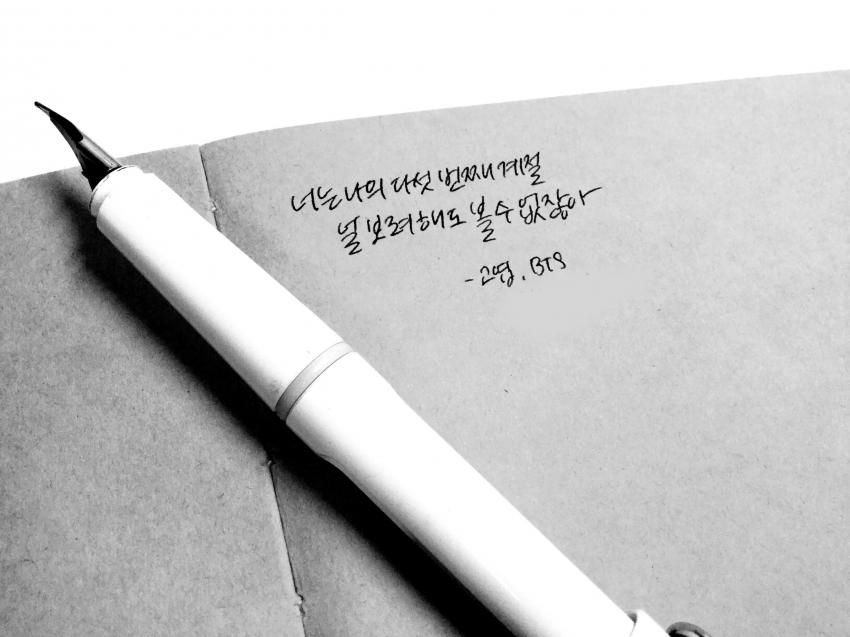 너는 나의 다섯 번째 계절
널 보려해도 볼 수 없잖아
- 고엽, BTS